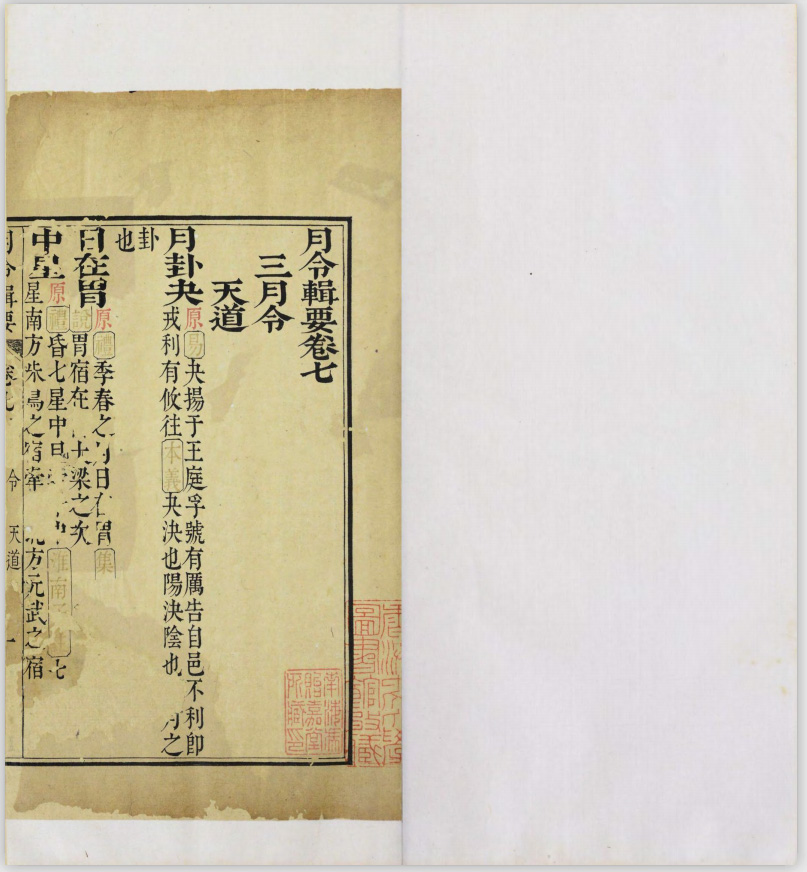 月令輯要卷七
三月令
天道
月卦夬原易夬揚于王庭孚號有厲告自邑不利即
戎利有攸往本義夬決也陽決陰也 月之
卦
也
日在胃原禮季春之 日在胃集
說胃宿在 梁之次
中星原禮昏七星中旦 淮南 七
星南方朱鳥之宿牽 方元武之宿
月令輯要 卷七 令 天道 一